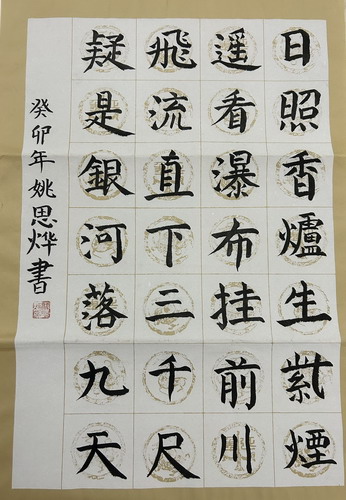 日照香爐生紫煙
遥看瀑布挂前川
飛流直下三千尺
疑是銀河落九天
癸卯年姚思烨書